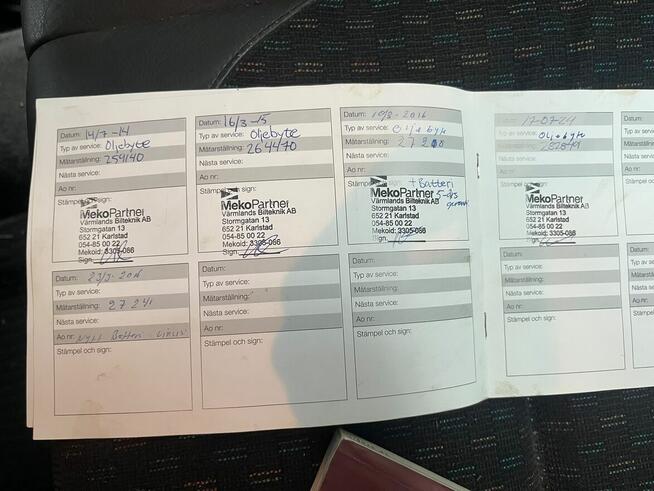 Datum: 14/7-14
Typ av service: Oljebyte
Mätarställning: 259140
Nästa service:
Ao nr:
Stämpel och sign:
MekoPartner
Värmlands Bilteknik AB
Stormgatan 13
652 21 Karlstad
054-85 00 22
Mekoid: 3305-066
Sign.
Datum: 16/3-15
Typ av service: Oljebyte
Mätarställning: 264470
Nästa service:
Ao nr:
Stämpel och sign:
MekoPartner
Värmlands Bilteknik AB
Stormgatan 13
652 21 Karlstad
054-85 00 22
Mekoid: 3305-066
Sign.
Datum: 2016
Typ av service: Oljebyte
Mätarställning:
Nästa service:
Ao nr:
Stämpel sign: + Batteri
MekoPartner 5-års
Värmlands Bilteknik AB
Stormgatan 13
652 21 Karlstad
054-85 00 22
Mekoid: 3305-066
Sign.
Typ av service: Oljebyte
Mätarställning:
Nästa service:
Ao nr:
Stämpel och sign:
MekoPartner
Värmlands Bilteknik AB
Stormgatan 13
652 21 Karlstad
054-85 00 22
Mekoid: 3305-066
Sign.
Datum:
Typ av service:
Mätarställning:
Nästa service:
Ao nr: Nytt Batteri
Stämpel och sign:
Datum:
Typ av service:
Mätarställning:
Nästa service:
Ao nr:
Stämpel och sign:
Datum:
Typ av service:
Mätarställning:
Nästa service:
Ao nr:
Stämpel och sign:
Datum:
Typ av service:
Mätarställning:
Nästa service:
Ao nr:
Stämpel och sign: